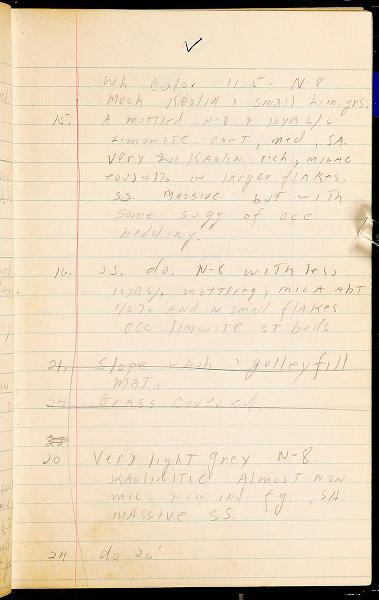 ✓
Wh color 11.5- N-8
Much KAOLIN & small Lim. grs.
15. A mottled N-8 & 10YR 6/6
LIMONITE CONT, med, SA.
Very KAOLIN rich, MICAC
in larger flakes.
SS. MASSIVE but with
some sugg of occ
bedding.
16. SS. do. N-8 with less
10YR 6/6 mottling, MICA abt
1/2% AND IN small flakes
OCC limonite st beds
21. Slope wash & gulleyfill
MAT.
24 GRASS covered
20 Very light grey N-8
KAOLINITIC Almost NON
MIC. NON IND fg, SA.
MASSIVE SS.
24 do 20'